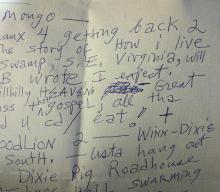 Mongo —
anx 4 getting back 2
The story of How i live
swamp, S.E. Virginia, will
B wrote I expect.
illbilly HEAVEN Great
gospel, all tha
d u cd/ eat." +
oodLion 2 — WINN-DIXIE
South. — usta hang out
Dixie Pig Roadhouse
swarming